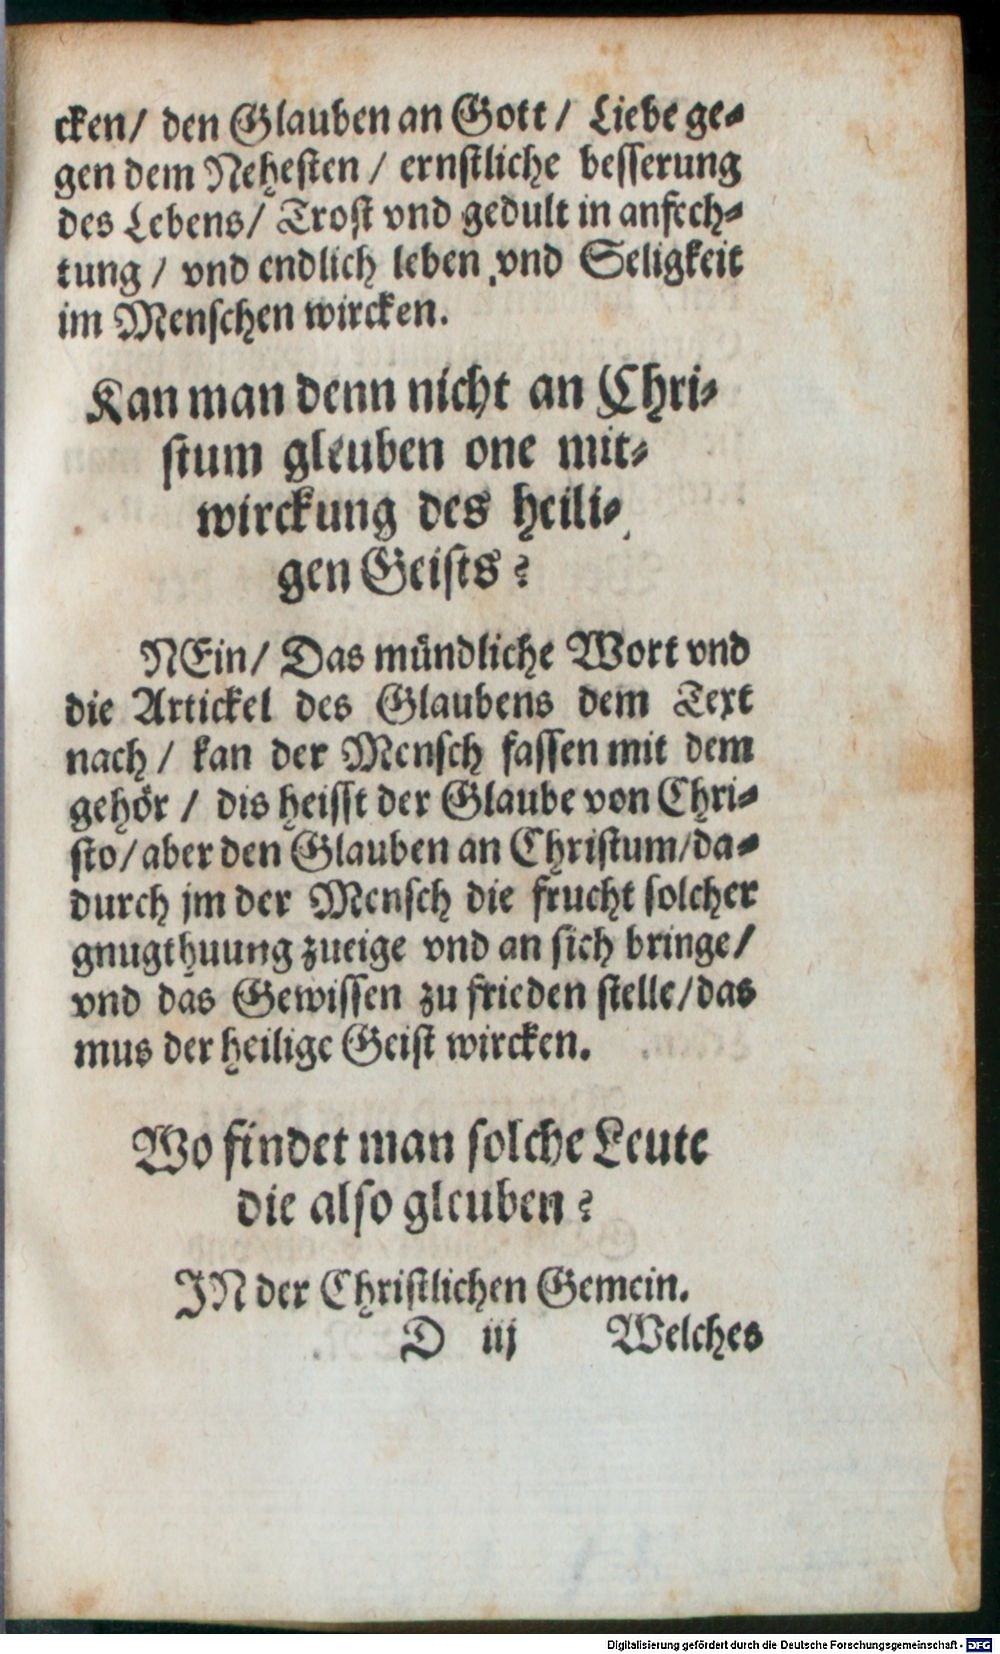 cken/ den Glauben an Gott/ Liebe ge-
gen dem Nehesten/ ernstliche besserung
des Lebens/ Trost vnd gedult in anfech-
tung/ vnd endlich leben vnd Seligkeit
im Menschen wircken.
Kan man denn nicht an Chri-
stum gleuben one mit-
wirckung des heili-
gen Geists?
NEin/ Das mündliche Wort vnd
die Artickel des Glaubens dem Text
nach/ kan der Mensch fassen mit dem
gehör/ dis heisst der Glaube von Chri-
sto/ aber den Glauben an Christum/ da-
durch jm der Mensch die frucht solcher
gnugthuung zueige vnd an sich bringe/
vnd das Gewissen zu frieden stelle/ das
mus der heilige Geist wircken.
Wo findet man solche Leute
die also gleuben?
JN der Christlichen Gemein.
D iij Welches
Digitalisierung gefördert durch die Deutsche Forschungsgemeinschaft - DFG